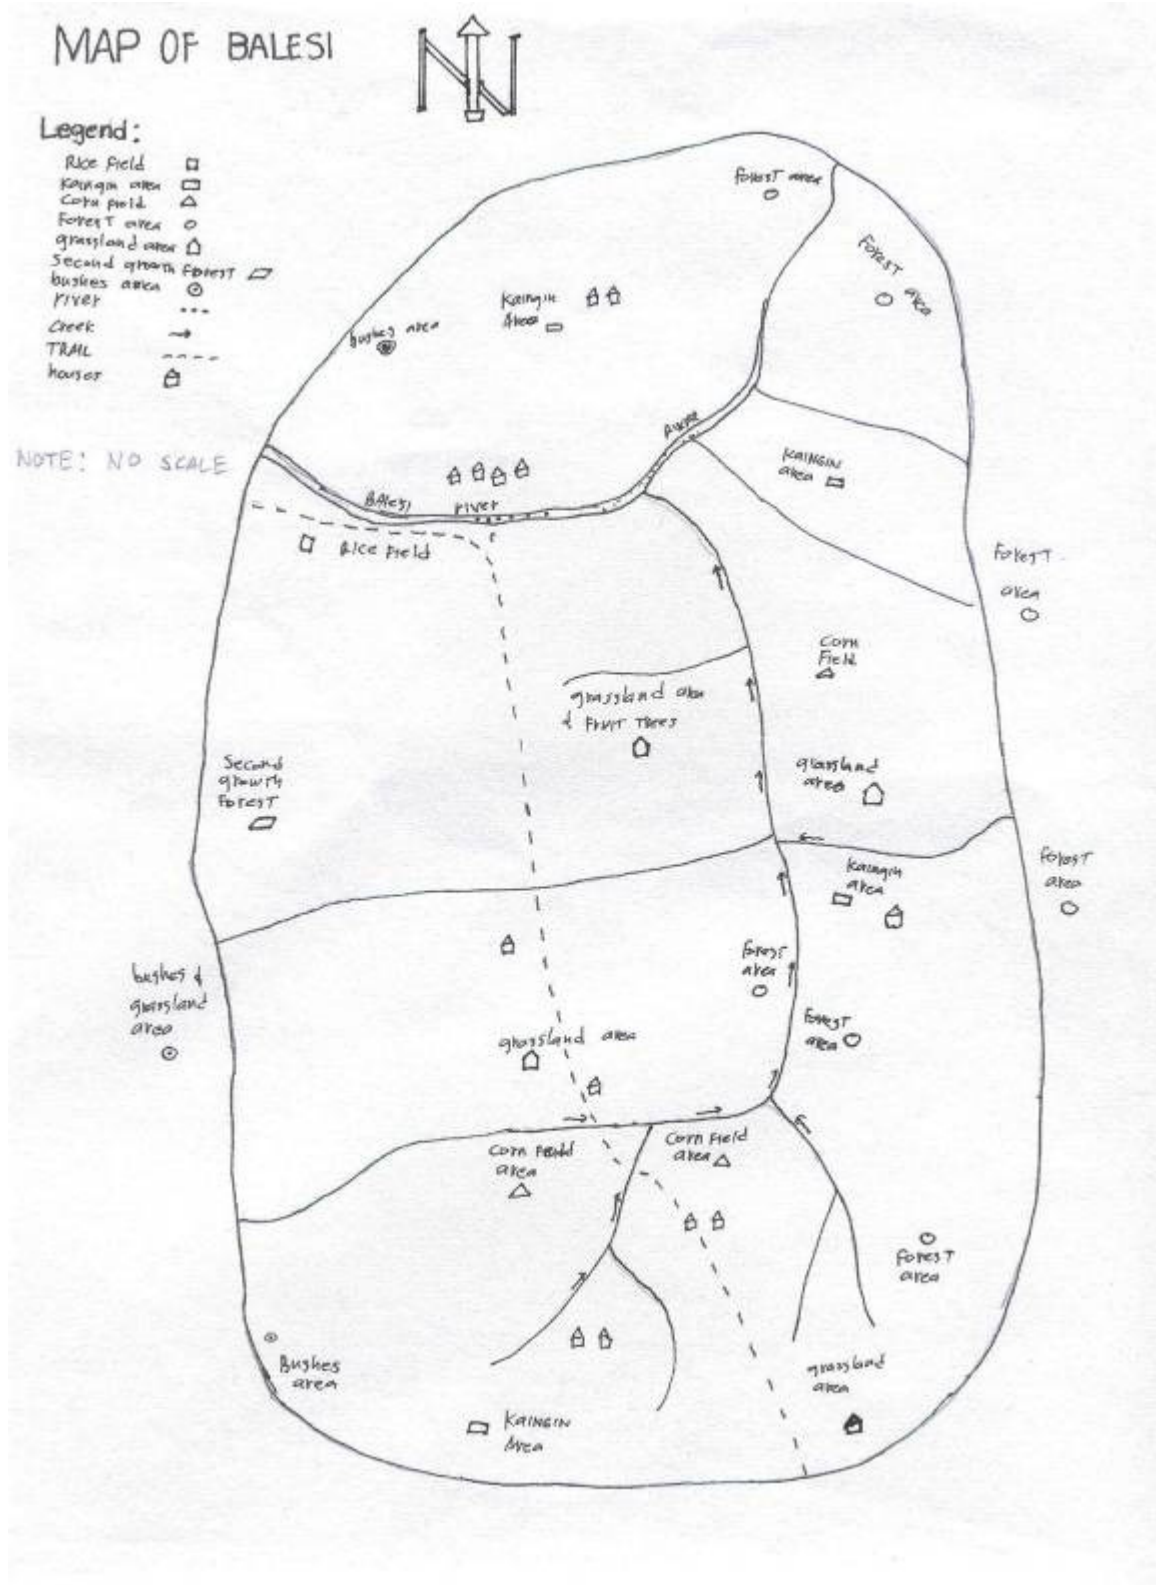 MAP OF BALESI
N
Legend:
Rice Field
Kaingin area
Corn field
Forest area
grassland area
Second growth Forest
bushes area
river
Creek
TRAIL
houses
NOTE: NO SCALE
Forest area
Forest area
Kaingin
Area
bushes area
River
KAINGIN
area
BALESI river
Rice Field
Forest
area
Corn
Field
grassland area
& Fruit Trees
grassland
area
Second
growth
Forest
Kaingin
area
Forest
area
bushes &
grassland
area
Forest
area
Forest
area
grassland area
Corn Field
area
Corn Field
area
Forest
area
Bushes
area
grassland
area
KAINGIN
Area